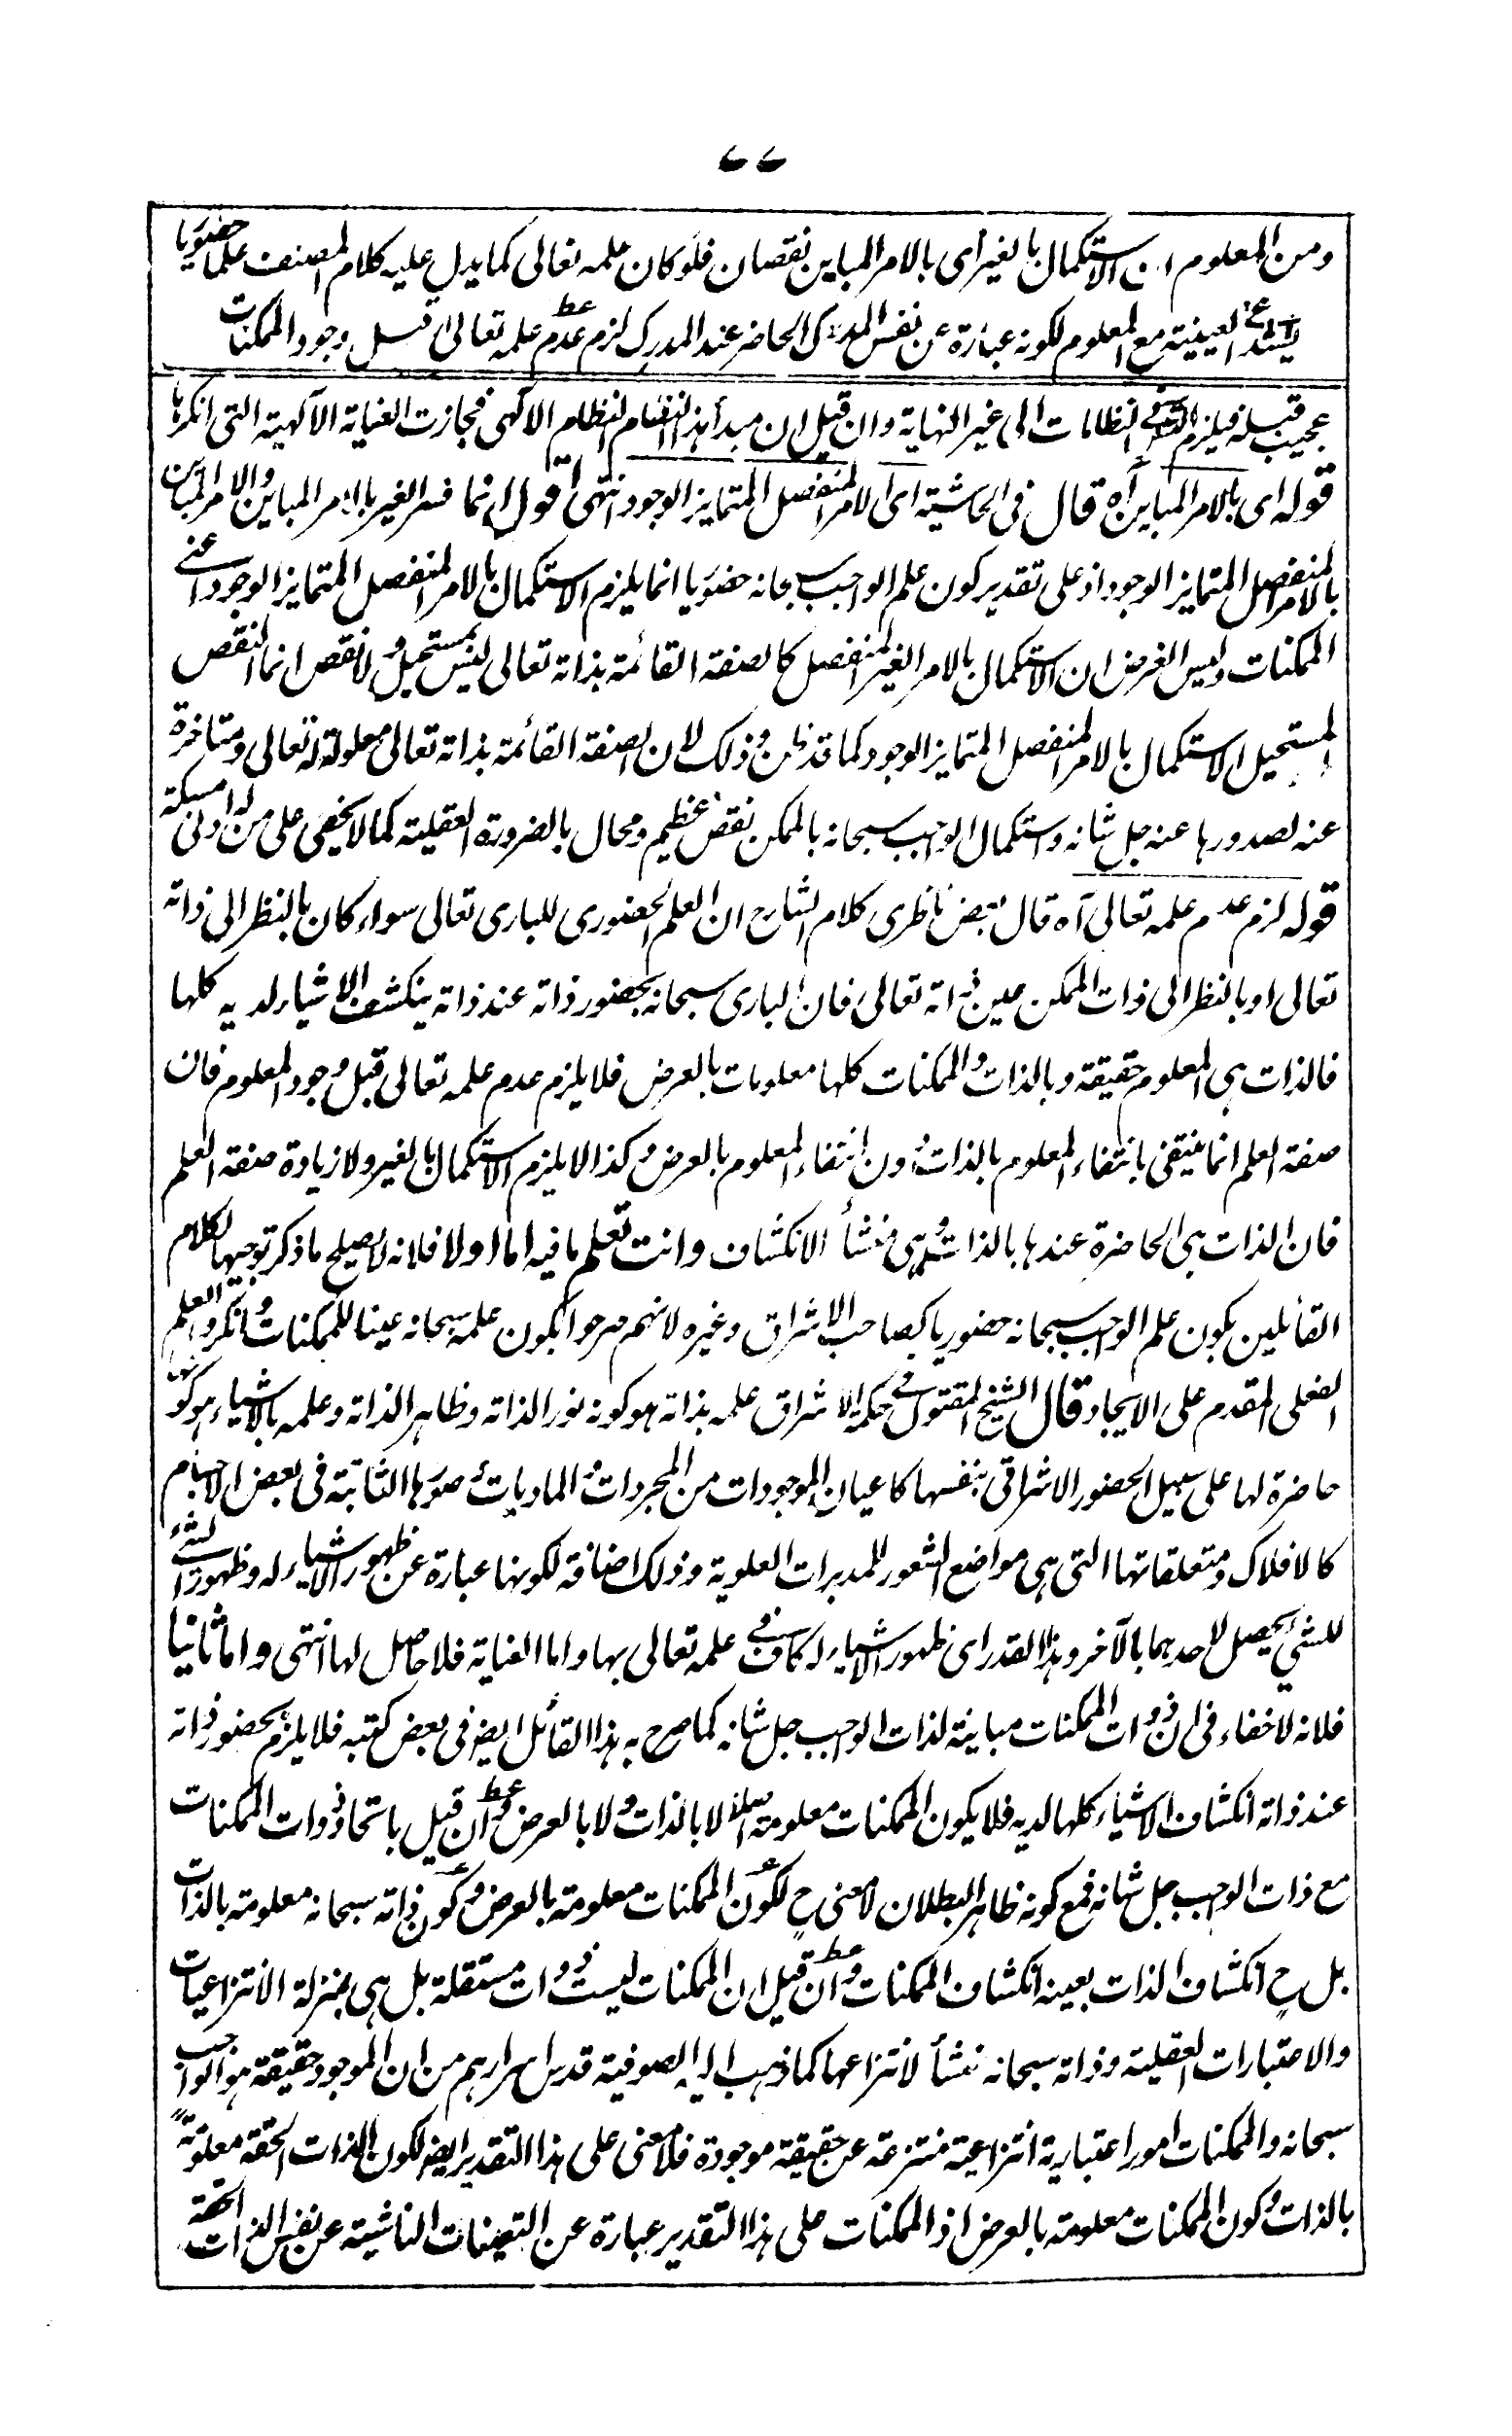 ٧٧
ومن المعلوم ان الاستكمال بالغير اى بالامر المباين نقصان فلو كان علمه تعالى كما يدل عليه كلام المصنف علما حضوريا
يستدعى العينية مع المعلوم لكونه عبارة عن نفس المدرك الحاضر عند المدرك لزم عدم علمه تعالى قبل وجود الممكنات
عجيب قبله فيلزم النظامات الى غير النهاية وان قيل ان مبدأ هذا النظام النظام الالهى فجازت العناية الآلهية التى انكرها
قوله اى بالامر المباين آه قال فى الحاشية اى الامر المنفصل المتمايز الوجود انتهى اقول انما فسر الغير بالامر المباين والامر المباين
بالامر المنفصل المتمايز الوجود اذ على تقدير كون علم الواجب سبحانه حضوريا انما يلزم الاستكمال بالامر المنفصل المتمايز الوجود اعنى
الممكنات وليس الغرض ان الاستكمال بالامر الغير المنفصل كالصفة القائمة بذاته تعالى ليس بمستحيل ولا نقص انما النقص
المستحيل الاستكمال بالامر المنفصل المتمايز الوجود كما قد ظن وذلك لان الصفة القائمة بذاته تعالى معلولة له تعالى ومتاخرة
عنه لصدورها عنه جل شانه واستكمال الواجب سبحانه بالممكن نقص عظيم ومحال بالضرورة العقلية كما لا يخفى على من له ادنى مسكة
قوله لزم عدم علمه تعالى آه قال بعض ناظرى كلام الشارح ان العلم الحضورى للبارى تعالى سواء كان بالنظر الى ذاته
تعالى او بالنظر الى ذات الممكن عين ذاته تعالى فان البارى سبحانه بحضور ذاته عند ذاته ينكشف الاشياء لديه كلها
فالذات هى المعلوم حقيقة وبالذات والممكنات كلها معلومات بالعرض فلا يلزم عدم علمه تعالى قبل وجود المعلوم فان
صفة العلم انما ينتفى بانتفاء المعلوم بالذات دون انتفاء المعلوم بالعرض وكذا لا يلزم الاستكمال بالغير ولا زيادة صفة العلم
فان الذات هى الحاضرة عندها بالذات وهى منشأ الانكشاف وانت تعلم ما فيه اما اولا فلانه لا يصلح ما ذكر توجيها لكلام
القائلين بكون علم الواجب سبحانه حضوريا كصاحب الاشراق وغيره لانهم صرحوا بكون علمه سبحانه عينا للممكنات وانكروا العلم
الفعلى المقدم على الايجاد قال الشيخ المقتول فى حكمة الاشراق علمه بذاته هو كونه نورا لذاته وظاهرا لذاته وعلمه بالاشياء هو كون
حاضرة لها على سبيل الحضور الاشراقى بنفسها كاعيان الموجودات من المجردات والماديات وصورها الثابتة فى بعض الاجسام
كالافلاك ومتعلقاتها التى هى مواضع الشعور للمدبرات العلوية وذلك اضافة لكونها عبارة عن ظهور الاشياء له وظهور الشئ
للشئ يحصل لاحدهما بالآخر وهذا القدر اى ظهور الاشياء له كاف فى علمه تعالى بها واما العناية فلا حاصل لها انتهى واما ثانيا
فلانه لا خفاء فى ان ذوات الممكنات مباينة لذات الواجب جل شانه كما صرح به هذا القائل ايضا فى بعض كتبه فلا يلزم بحضور ذاته
عند ذاته انكشاف الاشياء كلها لديه فلا يكون الممكنات معلومة اصلا لا بالذات ولا بالعرض وان قيل باتحاد ذوات الممكنات
مع ذات الواجب جل شانه فمع كونه ظاهر البطلان لا معنى ح لكون الممكنات معلومة بالعرض وكون ذاته سبحانه معلومة بالذات
بل ح انكشاف الذات بعينه انكشاف الممكنات وان قيل ان الممكنات ليست ذوات مستقلة بل هى بمنزلة الانتزاعيات
والاعتبارات العقلية وذاته سبحانه منشأ لانتزاعها كما ذهب اليه الصوفية قدس اسرارهم من ان الموجود حقيقة هو الواجب
سبحانه والممكنات امور اعتبارية انتزاعية منتزعة عن حقيقة موجودة فلا معنى على هذا التقدير ايضا لكون الذات الحقة معلومة
بالذات وكون الممكنات معلومة بالعرض اذ الممكنات على هذا التقدير عبارة عن التعينات الناشية عن نفس الذات الحقة